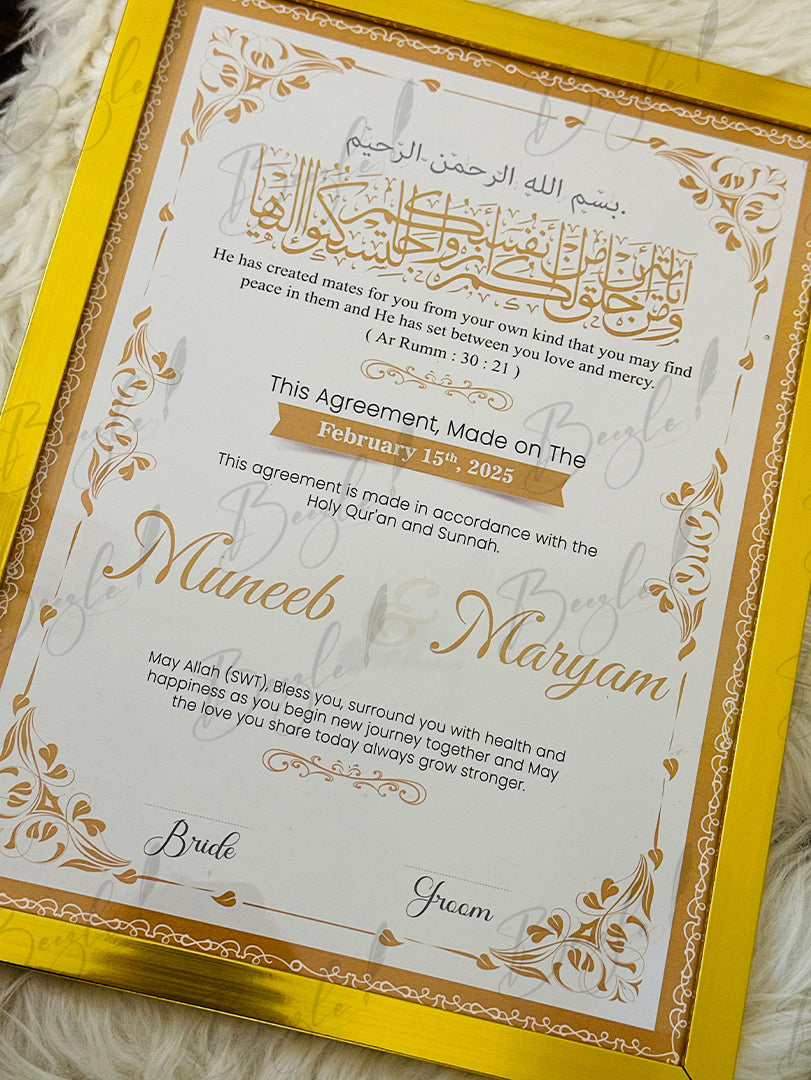 بسْم الله الرحمٰن الرّحيم.
ومن آياته أن خلق لكم من أنفسكم أزواجا لتسكنوا إليها
He has created mates for you from your own kind that you may find
peace in them and He has set between you love and mercy.
( Ar Rumm : 30 : 21 )
This Agreement, Made on The
February 15th, 2025
This agreement is made in accordance with the
Holy Qur'an and Sunnah.
Muneeb & Maryam
May Allah (SWT) Bless you, surround you with health and
happiness as you begin new journey together and May
the love you share today always grow stronger.
Bride
Groom
Beezle